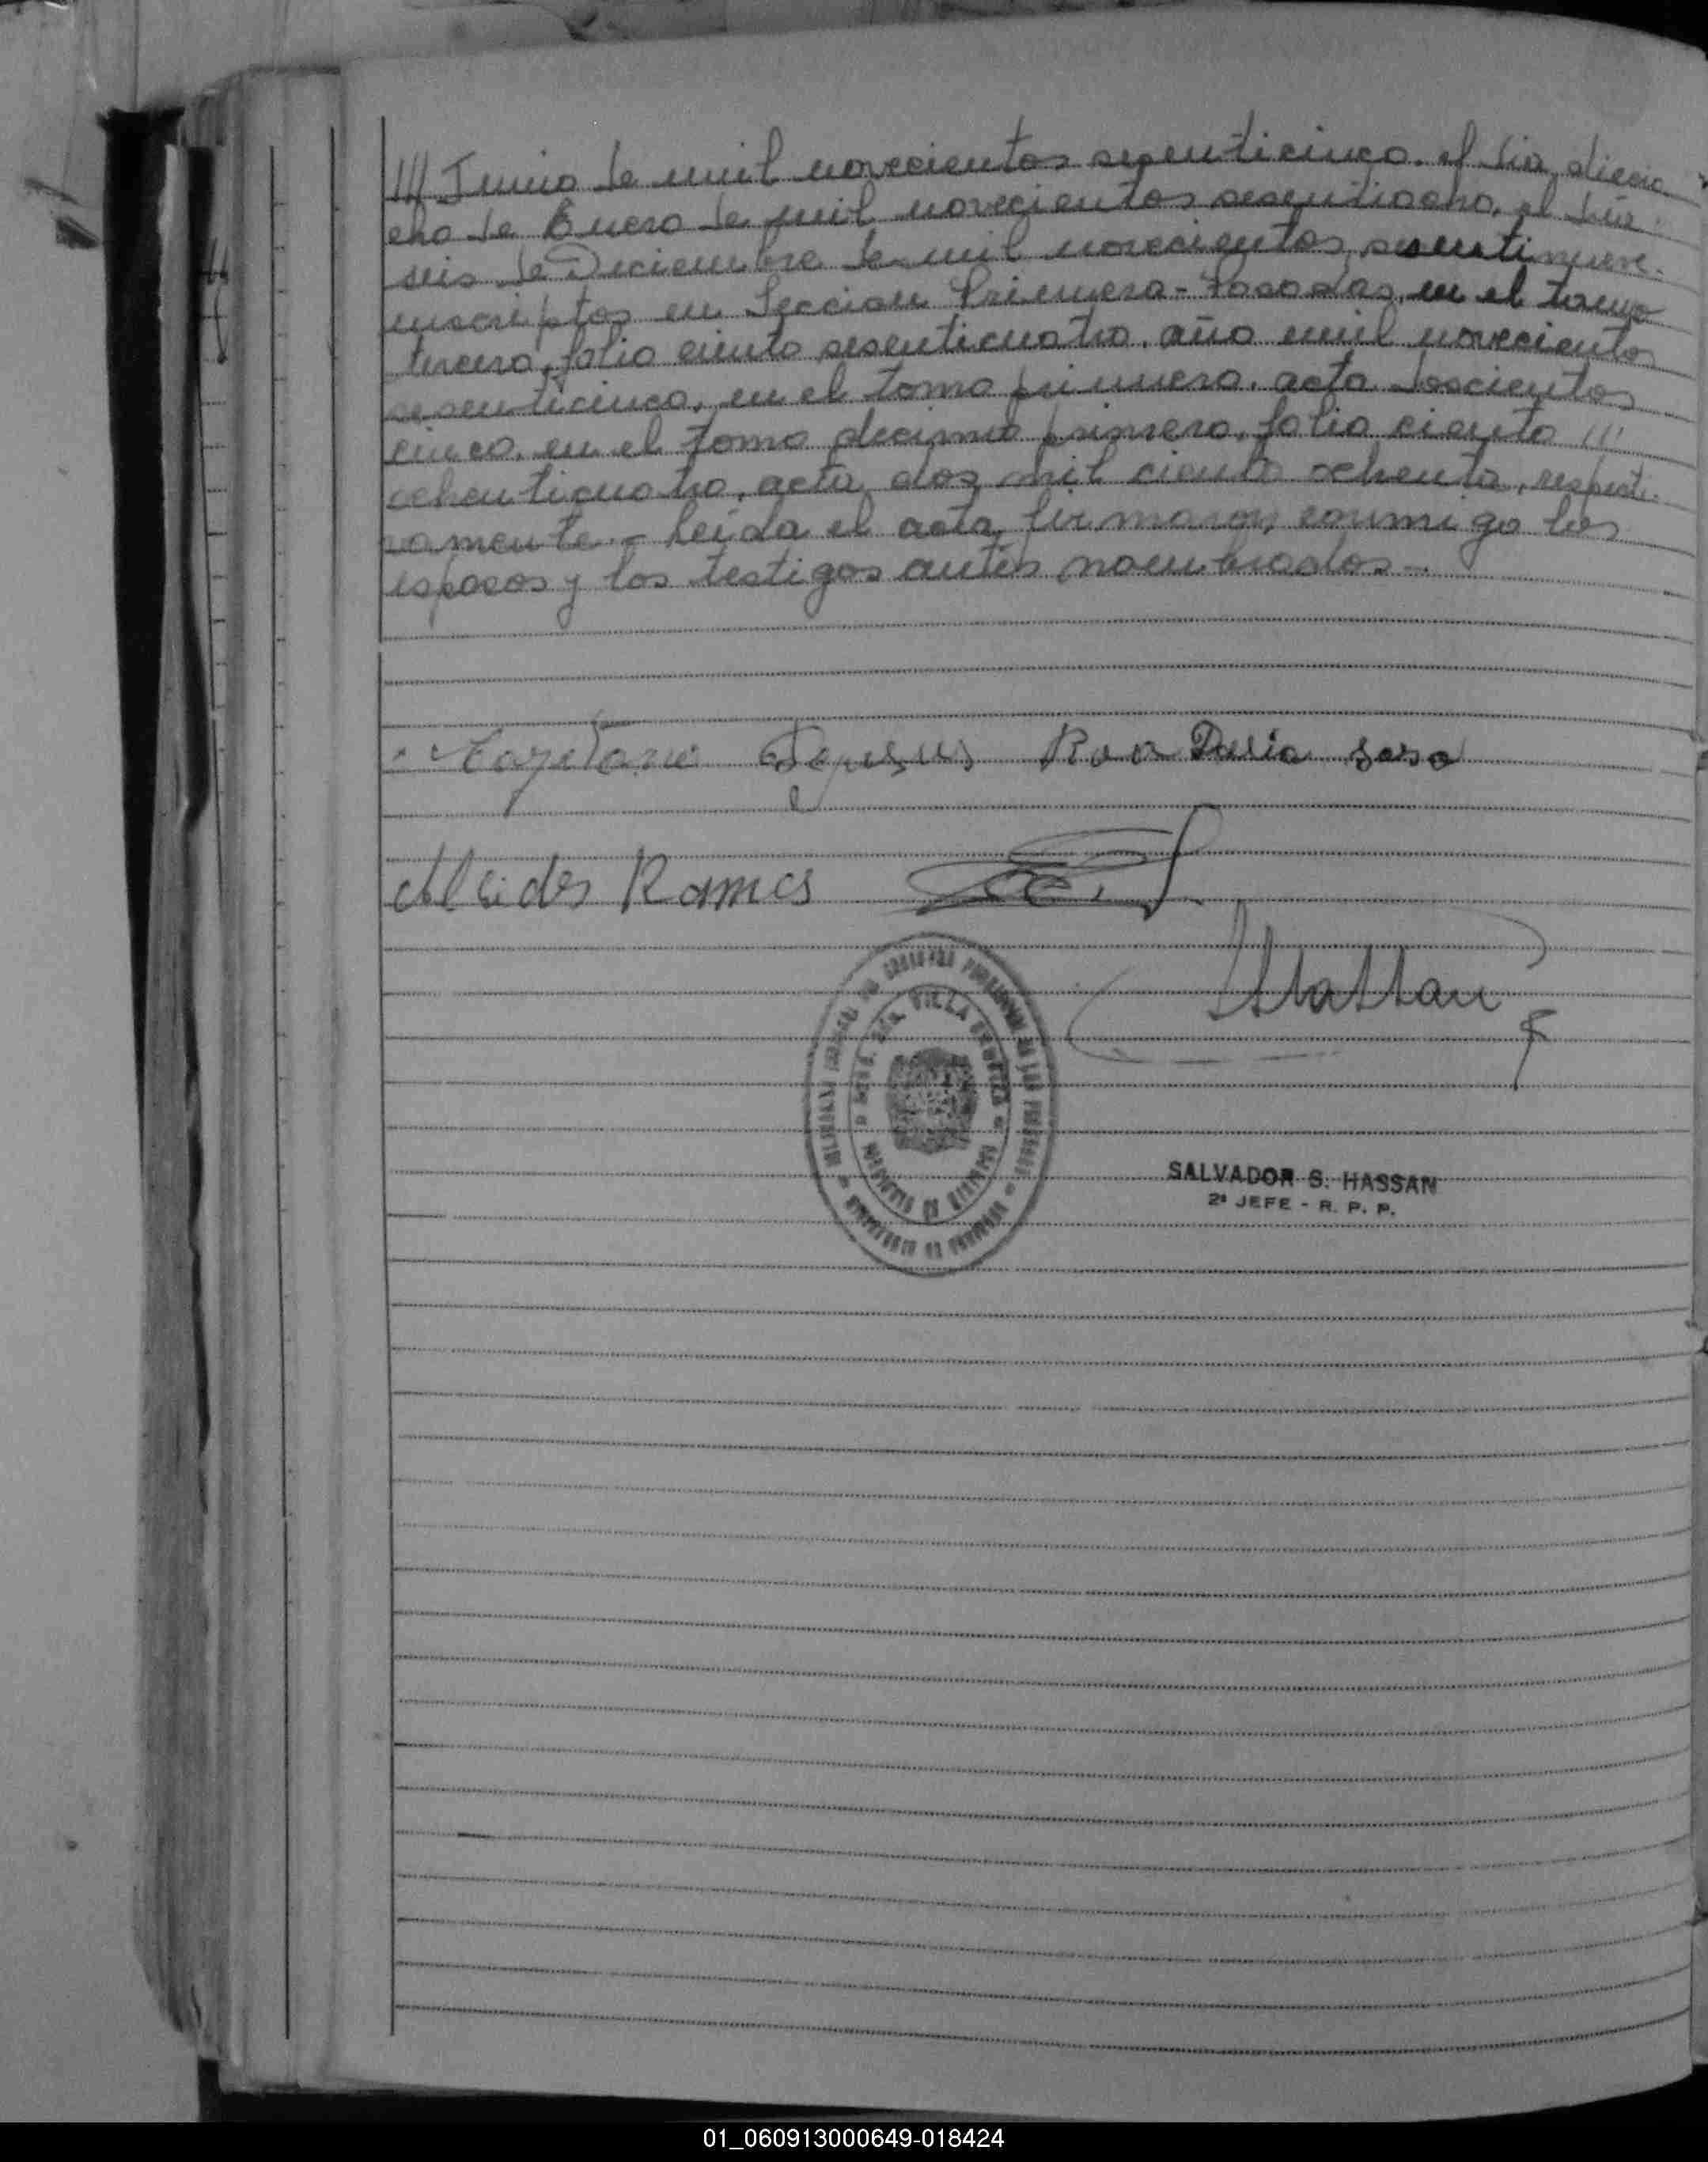 /// Junio de mil novecientos sesenticinco. el día diecio
cho de Enero de mil novecientos sesentiocho, el día
seis de Diciembre de mil novecientos sesentinueve.
inscriptos en Sección Primera - Posadas, en el tomo
tercero, folio ciento sesenticuatro, año mil novecientos
sesenticinco, en el tomo primero. acta doscientos
cinco, en el tomo decimo primero, folio ciento ///
ochenticuatro, acta dos mil ciento ochenta, respecti-
vamente. - Leída el acta, firmaron, conmigo los
esposos y los testigos antes nombrados. -
Rosa
Alcides Ramos
VILLA
SALVADOR S. HASSAN
2º JEFE - R. P. P.
01_060913000649-018424